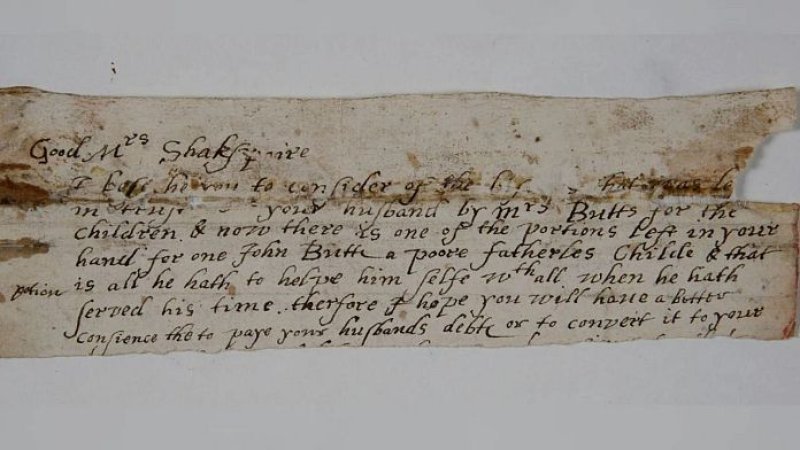 Good Mrs Shakspaire
I bese he you to consider of the that was
in trust your husband by Mrs Butts for the
children & now there is one of the portions left in your
hand for one John Butte a poore fatherles Childe & that
is all he hath to helpe him selfe wth all when he hath
potion
served his time therfore I hope you will have a better
consience the to paye your husbands debte or to convert it to your